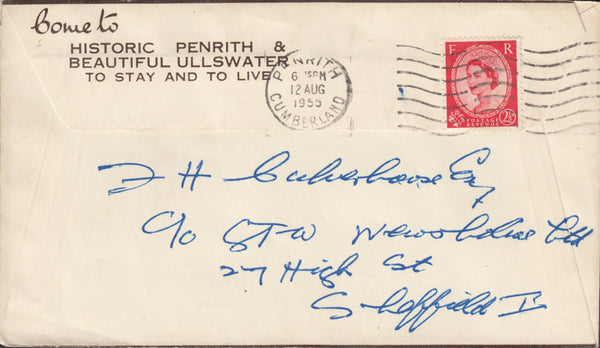 Come to
HISTORIC PENRITH &
BEAUTIFUL ULLSWATER
TO STAY AND TO LIVE
PENRITH
6 15PM
12 AUG
1955
CUMBERLAND
E R
POSTAGE
REVENUE
2½D
J H Culverhouse Esq
c/o GTW Ltd
27 High St
Sheffield 1